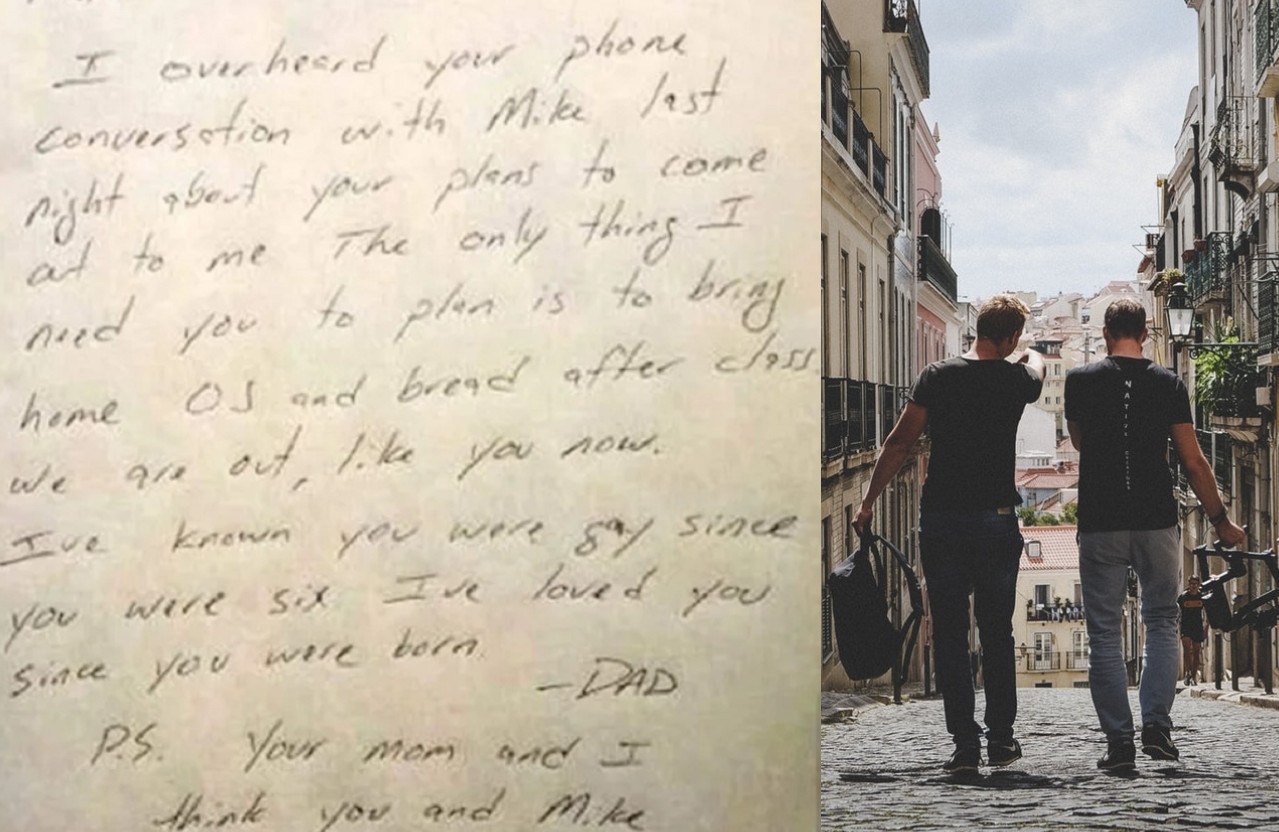 I overheard your phone
conversation with Mike last
night about your plans to come
out to me The only thing I
need you to plan is to bring
home OJ and bread after class
we are out, like you now.
I've known you were gay since
you were six I've loved you
since you were born.
-DAD
P.S. Your mom and I
think you and Mike
NATIVE